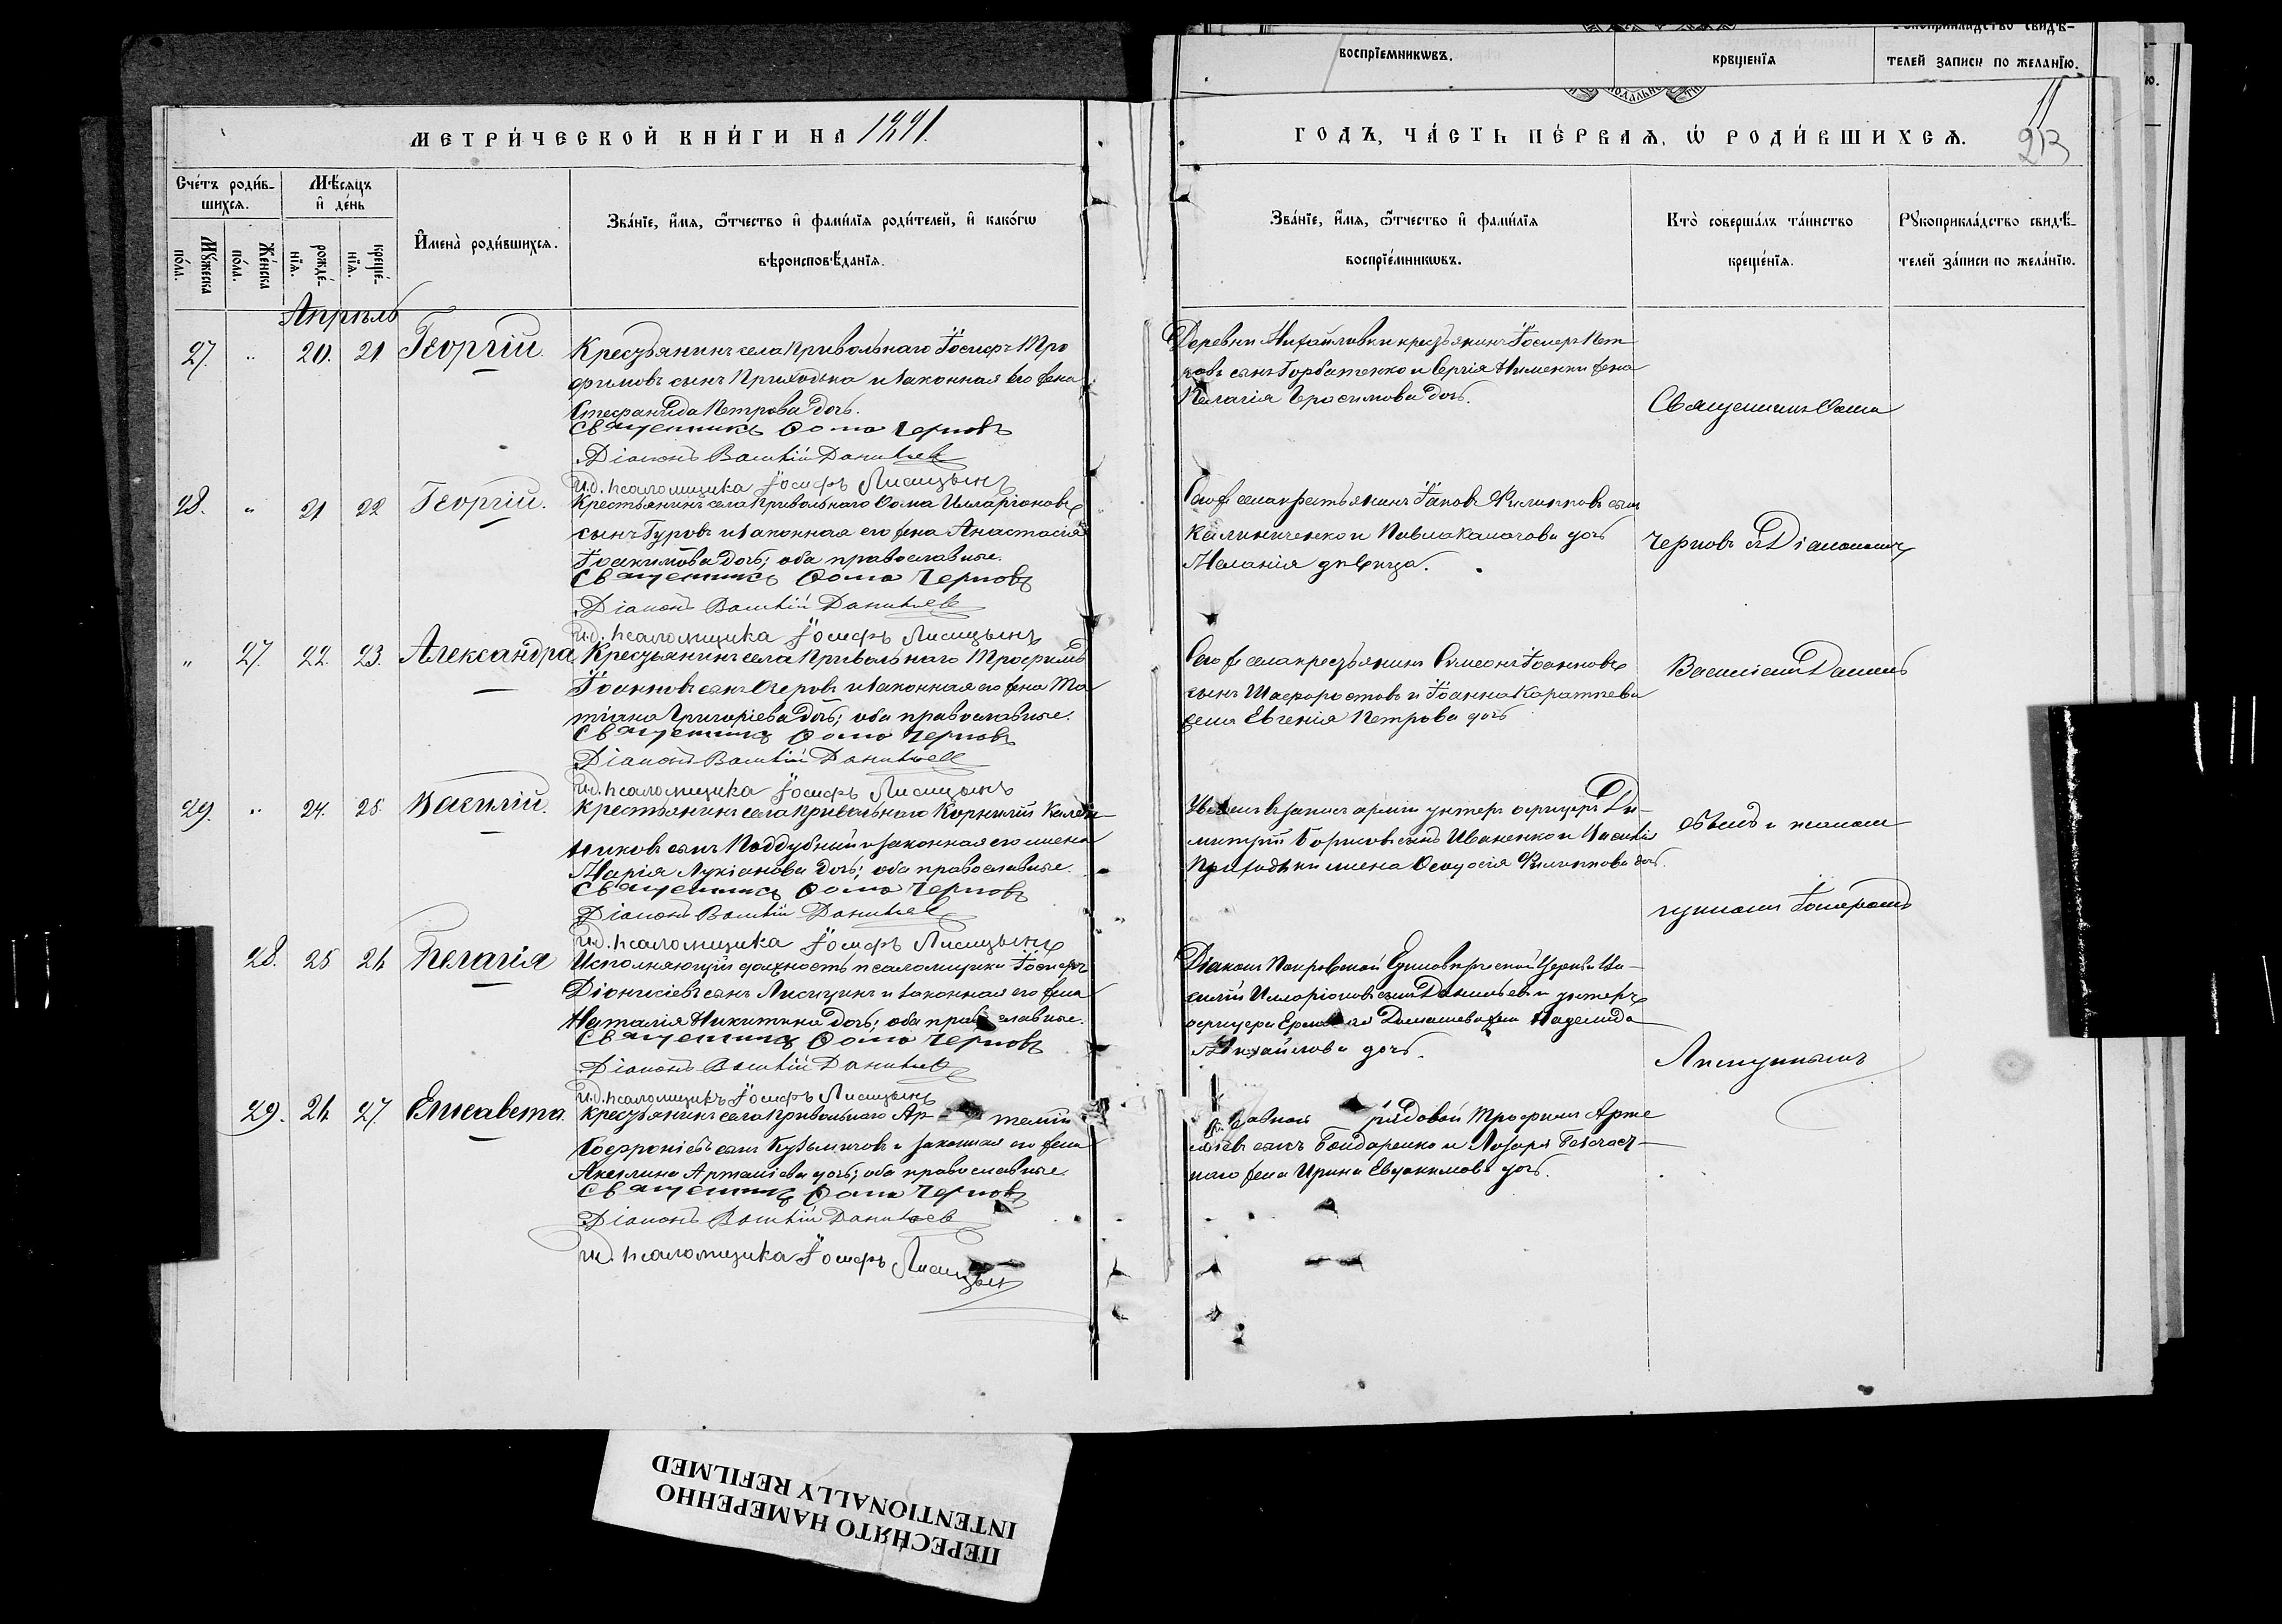 воспрїемникѡвъ.
крещенїя
телей записи по желанїю.
МЕТРИ́ЧЕСКОЙ КНИ́ГИ НА 1891.
ГОДЪ, ЧА́СТЬ ПЕ́РВАЯ, Ѡ РОДИ́ВШИХСЯ.
11
213
Сче́тъ роди́в-
шихся.
Мѣ́сяцъ
и де́нь
Имена̀ роди́вшихся.
Зва́нїе, и́мя, ѻ́тчество и фами́лїя роди́телей, и како́гѡ
вѣроисповѣ́данїя.
Му́жеска
по́ла.
Же́нска
по́ла.
рожде́-
нїя.
креще́-
нїя.
Зва́нїе, и́мя, ѻ́тчество и фами́лїя
воспрїе́мникѡвъ.
Кто̀ соверша́лъ та́инство
креще́нїя.
Рукоприкла́дство свидѣ́-
телей за́писи по жела́нїю.
Апрѣль
27. " 20. 21 Георгій.
Крестьянинъ села Привольнаго Іосифъ Тро
фимовъ сынъ Приходька и законная его жена
Стефанида Петрова дочь.
Священникъ Ѳома Черновъ
Діаконъ Василій Данильев
И.д. псаломщика Іосифъ Лисицынъ
Деревни Михайловки крестьянинъ Іосифъ Пет
ровъ сынъ Горбатенко и Сергія жена
Пелагія Герасимова дочь.
Священникъ Ѳома
28. " 21 22 Георгій.
Крестьянинъ села Привольнаго Ѳома Иларіоновъ
сынъ Гуровъ и законная его жена Анастасія
Іоакимова дочь; оба православные.
Священникъ Ѳома Черновъ
Діаконъ Василій Данильев
И.д. псаломщика Іосифъ Лисицынъ
Того же села крестьянинъ Іаковъ Филипповъ сынъ
Калиниченко и Павла дочь
Меланія дѣвица.
Черновъ съ Діакономъ
" 27. 22. 23. Александра
Крестьянинъ села Привольнаго Трофимъ
Іоанновъ сынъ и законная его жена Та
тіана Григоріева дочь; оба православные.
Священникъ Ѳома Черновъ
Діаконъ Василій Данильев
И.д. псаломщика Іосифъ Лисицынъ
Того же села крестьянинъ Симеонъ Іоанновъ
сынъ Шафоростовъ и Іоанна
жена Евгенія Петрова дочь
Василіемъ Данил
29. " 24. 25. Василій.
Крестьянинъ села Привольнаго Корнилій Калли
никовъ сынъ Поддубный и законная его жена
Марія Лукіанова дочь; оба православные.
Священникъ Ѳома Черновъ
Діаконъ Василій Данильев
И.д. псаломщика Іосифъ Лисицынъ
Уволенъ въ запасъ арміи унтеръ офицеръ Ди-
митрій Борисовъ сынъ Иваненко и Василія
Приходьки жена Филиппова дочь.
евымъ и псалом
28. 25 26 Пелагія
Исполняющій должность псаломщика Іосифъ
Діонисіевъ сынъ Лисицинъ и законная его жена
Наталія Никитина дочь; оба православные.
Священникъ Ѳома Черновъ
Діаконъ Василій Данильев
И.д. псаломщикъ Іосифъ Лисицынъ
Діаконъ Покровской Единовѣрческой Церкви Ва-
силій Илларіоновъ сынъ Данильевъ и унтеръ
офицера жена Надежда
Михайлова дочь.
щикомъ Іосифомъ
Лисицынымъ
29. 26 27. Елисавета.
Крестьянинъ села Привольнаго Ар
Софроніевъ сынъ и законная его жена
Акилина дочь; оба православные.
Священникъ Ѳома Черновъ
Діаконъ Василій Данильев
И.д. псаломщика Іосифъ Лисицын
рядовой Трофимъ Арте
сынъ Бондаренко и Лазаря
наго жена Ирина Евдокимова дочь.
ПЕРЕСНЯТО НАМЕРЕННО
INTENTIONALLY REFILMED